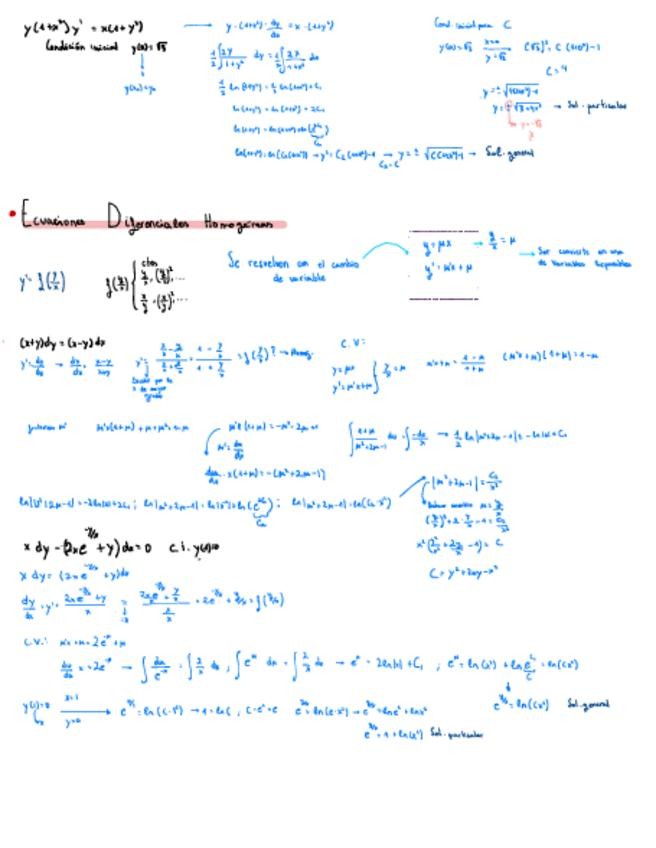 y(1+x²)y' = x(1+y²) → y·(1+x²)·dy/dx = x·(1+y²)
Condición inicial y(0)=√3
y(x₀)=y₀
1/2 ∫ 2y/(1+y²) dy = 1/2 ∫ 2x/(1+x²) dx
1/2 ln(1+y²) = 1/2 ln(1+x²)+C₁
ln(1+y²) = ln(1+x²)+2C₁
ln(1+y²) = ln(C₂(1+x²)) → y² = C₂(1+x²)-1 → y = ± √(C(1+x²)-1) → Sol. general
C₂=C
Cond. inicial para C
y(0)=√3 x=0 y=√3 (√3)² = C(1+0²)-1
C=4
y = ± √(4(1+x²)-1)
y = ± √(3+4x²) → Sol. particular
• Ecuaciones Diferenciales Homogéneas
y' = f(y/x)
f(y/x) { ctes
y/x, (y/x)², ...
x/y, (x/y)², ...
Se resuelven con el cambio
de variable
y = μx → y/x = μ
y' = μ'x+μ
→ Se convierte en una
de variables separables
(x+y)dy = (x-y)dx
y' = dy/dx → dy/dx = (x-y)/(x+y)
y' = (x/x - y/x)/(x/x + y/x) = (1 - y/x)/(1 + y/x) = f(y/x)? → Homog.
C.V:
y=μx
y'=μ'x+μ } y/x = μ
μ'x+μ = (1-μ)/(1+μ) (μ'x+μ)(1+μ) = 1-μ
μ'x(1+μ) = -μ²-2μ+1
μ' = dμ/dx
dμ/dx · x(1+μ) = -(μ²+2μ-1)
∫ (1+μ)/(μ²+2μ-1) dμ = ∫ -dx/x → 1/2 ln|μ²+2μ-1| = -ln|x|+C₁
ln|μ²+2μ-1| = -2ln|x|+2C₁ ; ln|μ²+2μ-1| = ln(x⁻²)+ln(e^(2C₁)) ; ln|μ²+2μ-1| = ln(C₂·x⁻²)
C₂
|μ²+2μ-1| = C₂/x²
(y/x)²+2·y/x-1 = C₂/x²
x²(y²/x²+2y/x-1) = C
C = y²+2xy-x²
x dy - (2xe^(-y/x) + y)dx = 0 c.i. y(1)=0
x dy = (2xe^(-y/x) + y)dx
dy/dx = y' = (2xe^(-y/x) + y)/x = 2e^(-y/x) + y/x = f(y/x)
C.V.: μ'x+μ = 2e^(-μ)+μ
dμ/dx x = 2e^(-μ) → ∫ dμ/e^(-μ) = ∫ 2/x dx ; ∫ e^μ dμ = ∫ 2/x dx → e^μ = 2ln|x| + C₁ ; e^μ = ln(x²) + ln e^(C₁) = ln(Cx²)
e^(y/x) = ln(Cx²) Sol. general
y(1)=0 x=1 y=0 → e^(0/1) = ln(C·1²) → 1 = ln C, C=e¹=e e^(y/x) = ln(e·x²) → e^(y/x) = ln e + ln x²
e^(y/x) = 1 + ln(x²) Sol. particular